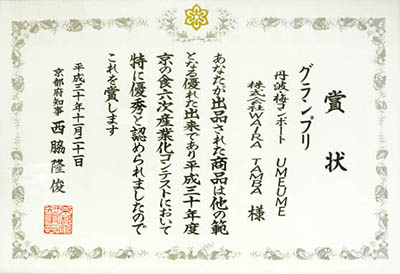 賞状
グランプリ
丹波梅コンポート UMEUME
株式会社WAIRA TAMBA 様
あなたが出品された商品は他の範
となる優れた出来であり平成三十年度
京の食六次産業化コンテストにおいて
特に優秀と認められましたので
これを賞します
平成三十年十一月二十一日
京都府知事 西脇隆俊